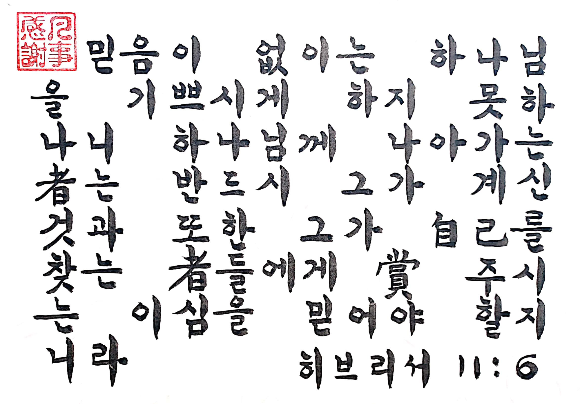 凡事感謝
믿음이 없이는 하나님
을 기쁘시게 하지 못하
나니 하나님께 나아가는
者는 반드시 그가 계신
것과 또한 그가 自己를
찾는 者들에게 賞 주시
는 이심을 믿어야 할지
니라
히브리서 11:6